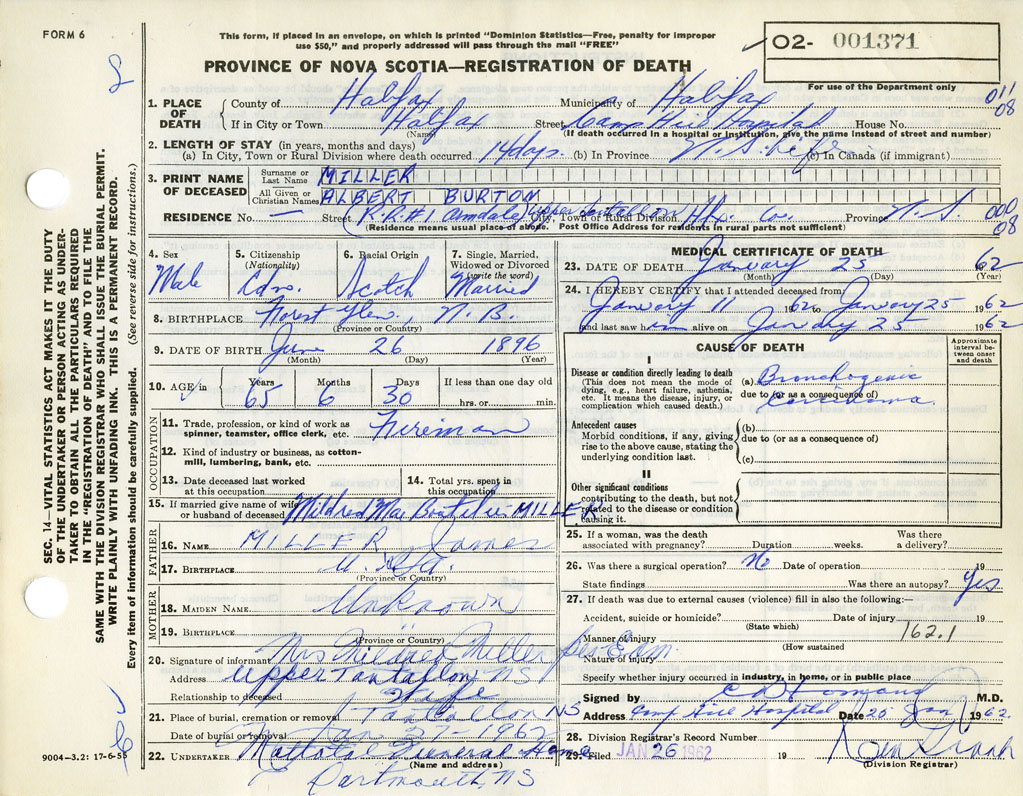 FORM 6
This form, if placed in an envelope, on which is printed "Dominion Statistics—Free, penalty for improper
use $50," and properly addressed will pass through the mail "FREE"
02- 001371
PROVINCE OF NOVA SCOTIA—REGISTRATION OF DEATH
For use of the Department only
011
08
1. PLACE OF DEATH
County of Halifax Municipality of Halifax
If in City or Town Halifax Street Camp Hill Hospital House No.
(Name) (If death occurred in a hospital or institution, give the name instead of street and number)
2. LENGTH OF STAY (in years, months and days)
(a) In City, Town or Rural Division where death occurred 14 days (b) In Province N.S. life (c) In Canada (if immigrant)
3. PRINT NAME OF DECEASED
Surname or Last Name MILLER
All Given or Christian Names ALBERT BURTON
RESIDENCE No. — Street R.R.#1 Armdale (Upper Tantallon) City, Town or Rural Division Hfx. Co. Province N.S.
(Residence means usual place of abode. Post Office Address for residents in rural parts not sufficient)
000
08
4. Sex Male
5. Citizenship (Nationality) Cdn.
6. Racial Origin Scotch
7. Single, Married, Widowed or Divorced (write the word) Married
8. BIRTHPLACE Forest Glen, N.B.
(Province or Country)
9. DATE OF BIRTH June 26 1896
(Month) (Day) (Year)
10. AGE in Years 65 Months 6 Days 30 If less than one day old hrs. or min.
OCCUPATION
11. Trade, profession, or kind of work as spinner, teamster, office clerk, etc. Fireman
12. Kind of industry or business, as cotton-mill, lumbering, bank, etc.
13. Date deceased last worked at this occupation
14. Total yrs. spent in this occupation
15. If married give name of wife or husband of deceased Mildred Mae MILLER
FATHER
16. NAME MILLER James
17. BIRTHPLACE U.S.A.
(Province or Country)
MOTHER
18. MAIDEN NAME Unknown
19. BIRTHPLACE "
(Province or Country)
20. Signature of informant Mrs Mildred Miller per
Address Upper Tantallon, NS
Relationship to deceased Wife
21. Place of burial, cremation or removal Tantallon NS
Date of burial or removal Jan 27-1962
22. UNDERTAKER Mattatal Funeral Home
(Name and address)
Dartmouth, NS
MEDICAL CERTIFICATE OF DEATH
23. DATE OF DEATH January 25 62
(Month) (Day) (Year)
24. I HEREBY CERTIFY that I attended deceased from
January 11 1962 to January 25 1962
and last saw him alive on January 25 1962
CAUSE OF DEATH
Approximate interval between onset and death
I
Disease or condition directly leading to death
(This does not mean the mode of dying, e.g., heart failure, asthenia, etc. It means the disease, injury, or complication which caused death.)
(a) Bronchogenic
due to (or as a consequence of) Carcinoma.
Antecedent causes
Morbid conditions, if any, giving rise to the above cause, stating the underlying condition last.
(b)
due to (or as a consequence of)
(c)
II
Other significant conditions
contributing to the death, but not related to the disease or condition causing it.
25. If a woman, was the death associated with pregnancy? Duration weeks. Was there a delivery?
26. Was there a surgical operation? No Date of operation 19
State findings Was there an autopsy? Yes
27. If death was due to external causes (violence) fill in also the following:—
Accident, suicide or homicide? Date of injury 19
(State which)
162.1
Manner of injury
(How sustained
Nature of injury
Specify whether injury occurred in industry, in home, or in public place
Signed by M.D.
Address Camp Hill Hospital Date 25 Jan 1962.
28. Division Registrar's Record Number
29. Filed JAN 26 1962 19
(Division Registrar)
SEC. 14—VITAL STATISTICS ACT MAKES IT THE DUTY
OF THE UNDERTAKER OR PERSON ACTING AS UNDER-
TAKER TO OBTAIN ALL THE PARTICULARS REQUIRED
IN THE "REGISTRATION OF DEATH" AND TO FILE THE
SAME WITH THE DIVISION REGISTRAR WHO SHALL ISSUE THE BURIAL PERMIT.
WRITE PLAINLY WITH UNFADING INK. THIS IS A PERMANENT RECORD.
Every item of information should be carefully supplied. (See reverse side for instructions.)
9004-3.2: 17-6-55